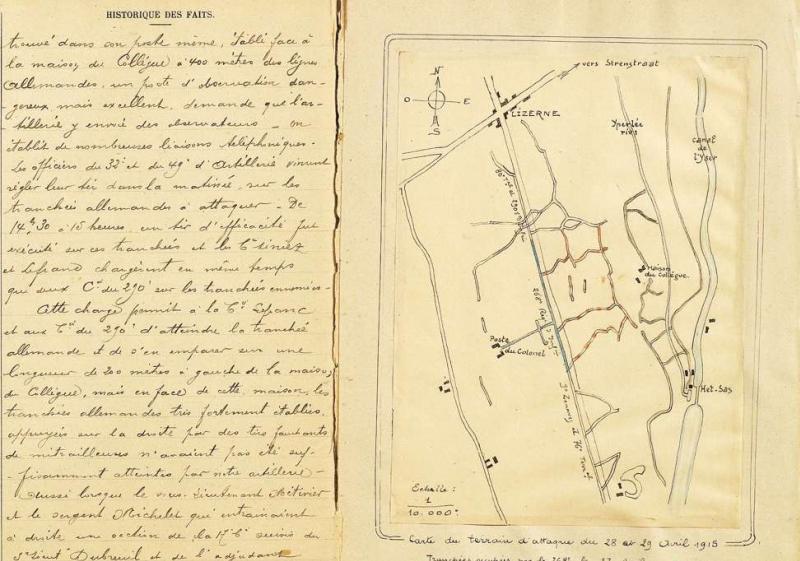 HISTORIQUE DES FAITS.
trouvé dans son poste même, établi face à
la maison du Collègue à 400 mètres des lignes
Allemandes, un poste d'observation dan-
-gereux mais excellent, demande que l'ar-
-tillerie y envoie des observateurs - on
établit de nombreuses liaisons téléphoniques.
Les officiers du 32e et du 49e d'Artillerie vinrent
régler leur tir dans la matinée, sur les
tranchées allemandes à attaquer - De
14h,30 à 15 heures, un tir d'efficacité fut
exécuté sur ces tranchées et les Cies
et Lefranc chargèrent en même temps
que deux Cies du 290e sur les tranchées ennemies-
Cette charge permit à la Cie Lefranc
et aux Cies du 290e d'atteindre la tranchée
allemande et de s'en emparer sur une
longueur de 200 mètres à gauche de la maison
du Collègue, mais en face de cette maison, les
tranchées allemandes très fortement établies,
appuyées sur la droite par des tirs fauchants
de mitrailleuses n'avaient pas été suf-
-fisamment atteintes par notre artillerie-
Aussi lorsque le sous-lieutenant Métivier
et le sergent Michelet qui entrainaient
à droite une section de la 17e Cie suivis du
S/Lieut Dubreuil et de l'adjudant
N
O E
S
vers Strenstraat
LIZERNE
Yperlée
riv.
Canal
de
l'Yser
90e et 290e
Maison
du Collègue.
268e Régt
Poste
du Colonel
Het-Sas
Echelle :
1
10.000e
Carte du terrain d'attaque du 28 et 29 Avril 1915